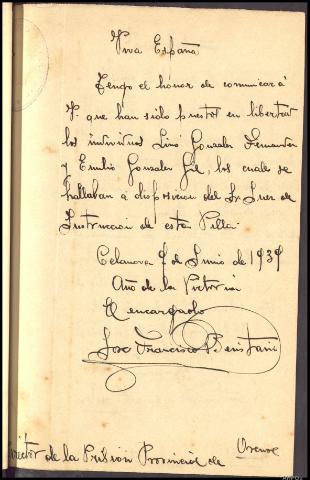 Viva España
Tengo el honor de comunicar á
V. que han sido puestos en libertad
los individuos Lino Gonzalez Fernandez
y Emilio Gonzalez Gil, los cuales se
hallaban á disposicion del Sr Juez de
Instruccion de esta Villa.
Celanova 9 de Junio de 1939
Año de la Victoria
El encargado
Jose Francisco
Director de la Prision Provincial de Orense